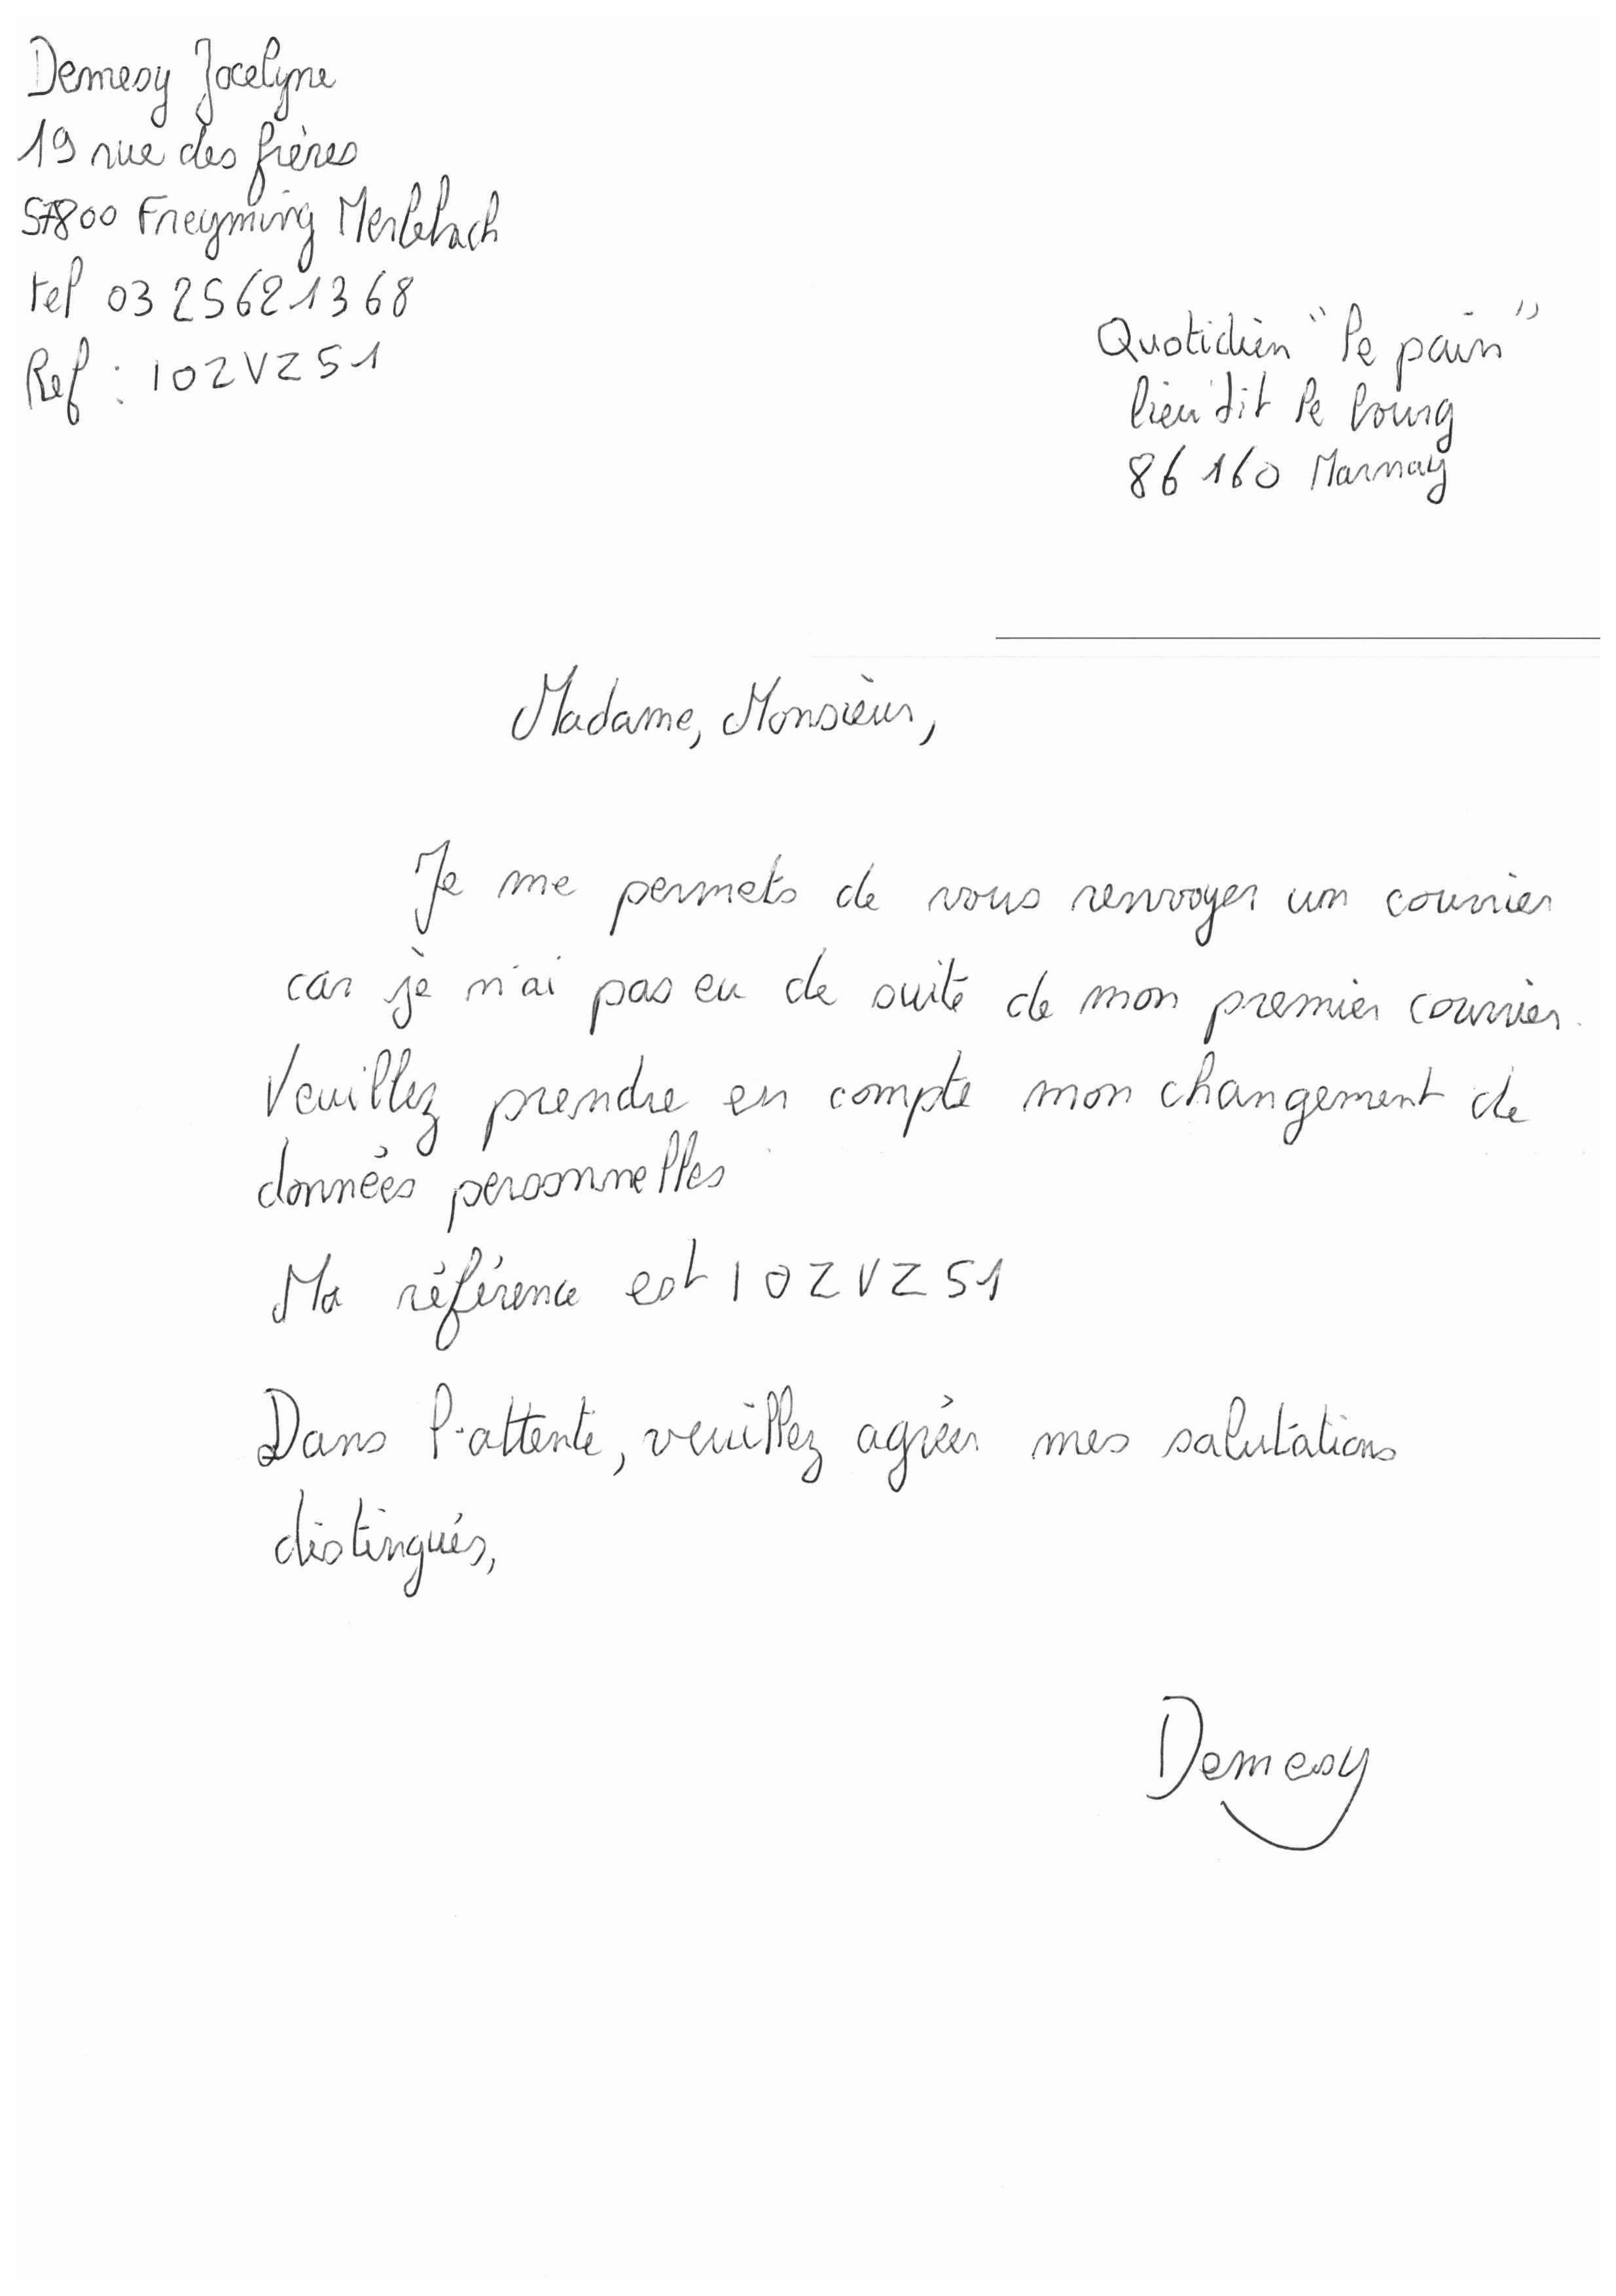 Demesy Jocelyne
19 rue des frères
57800 Freyming Merlebach
tel 03 25621368
Ref : IOZVZ51
Quotidien "le pain"
lieu dit le bourg
86160 Marnay
Madame, Monsieur,
Je me permets de vous renvoyer un courrier
car je n'ai pas eu de suite de mon premier courrier.
Veuillez prendre en compte mon changement de
données personnelles
Ma référence est IOZVZ51
Dans l'attente, veuillez agréer mes salutations
distingués,
Demesy